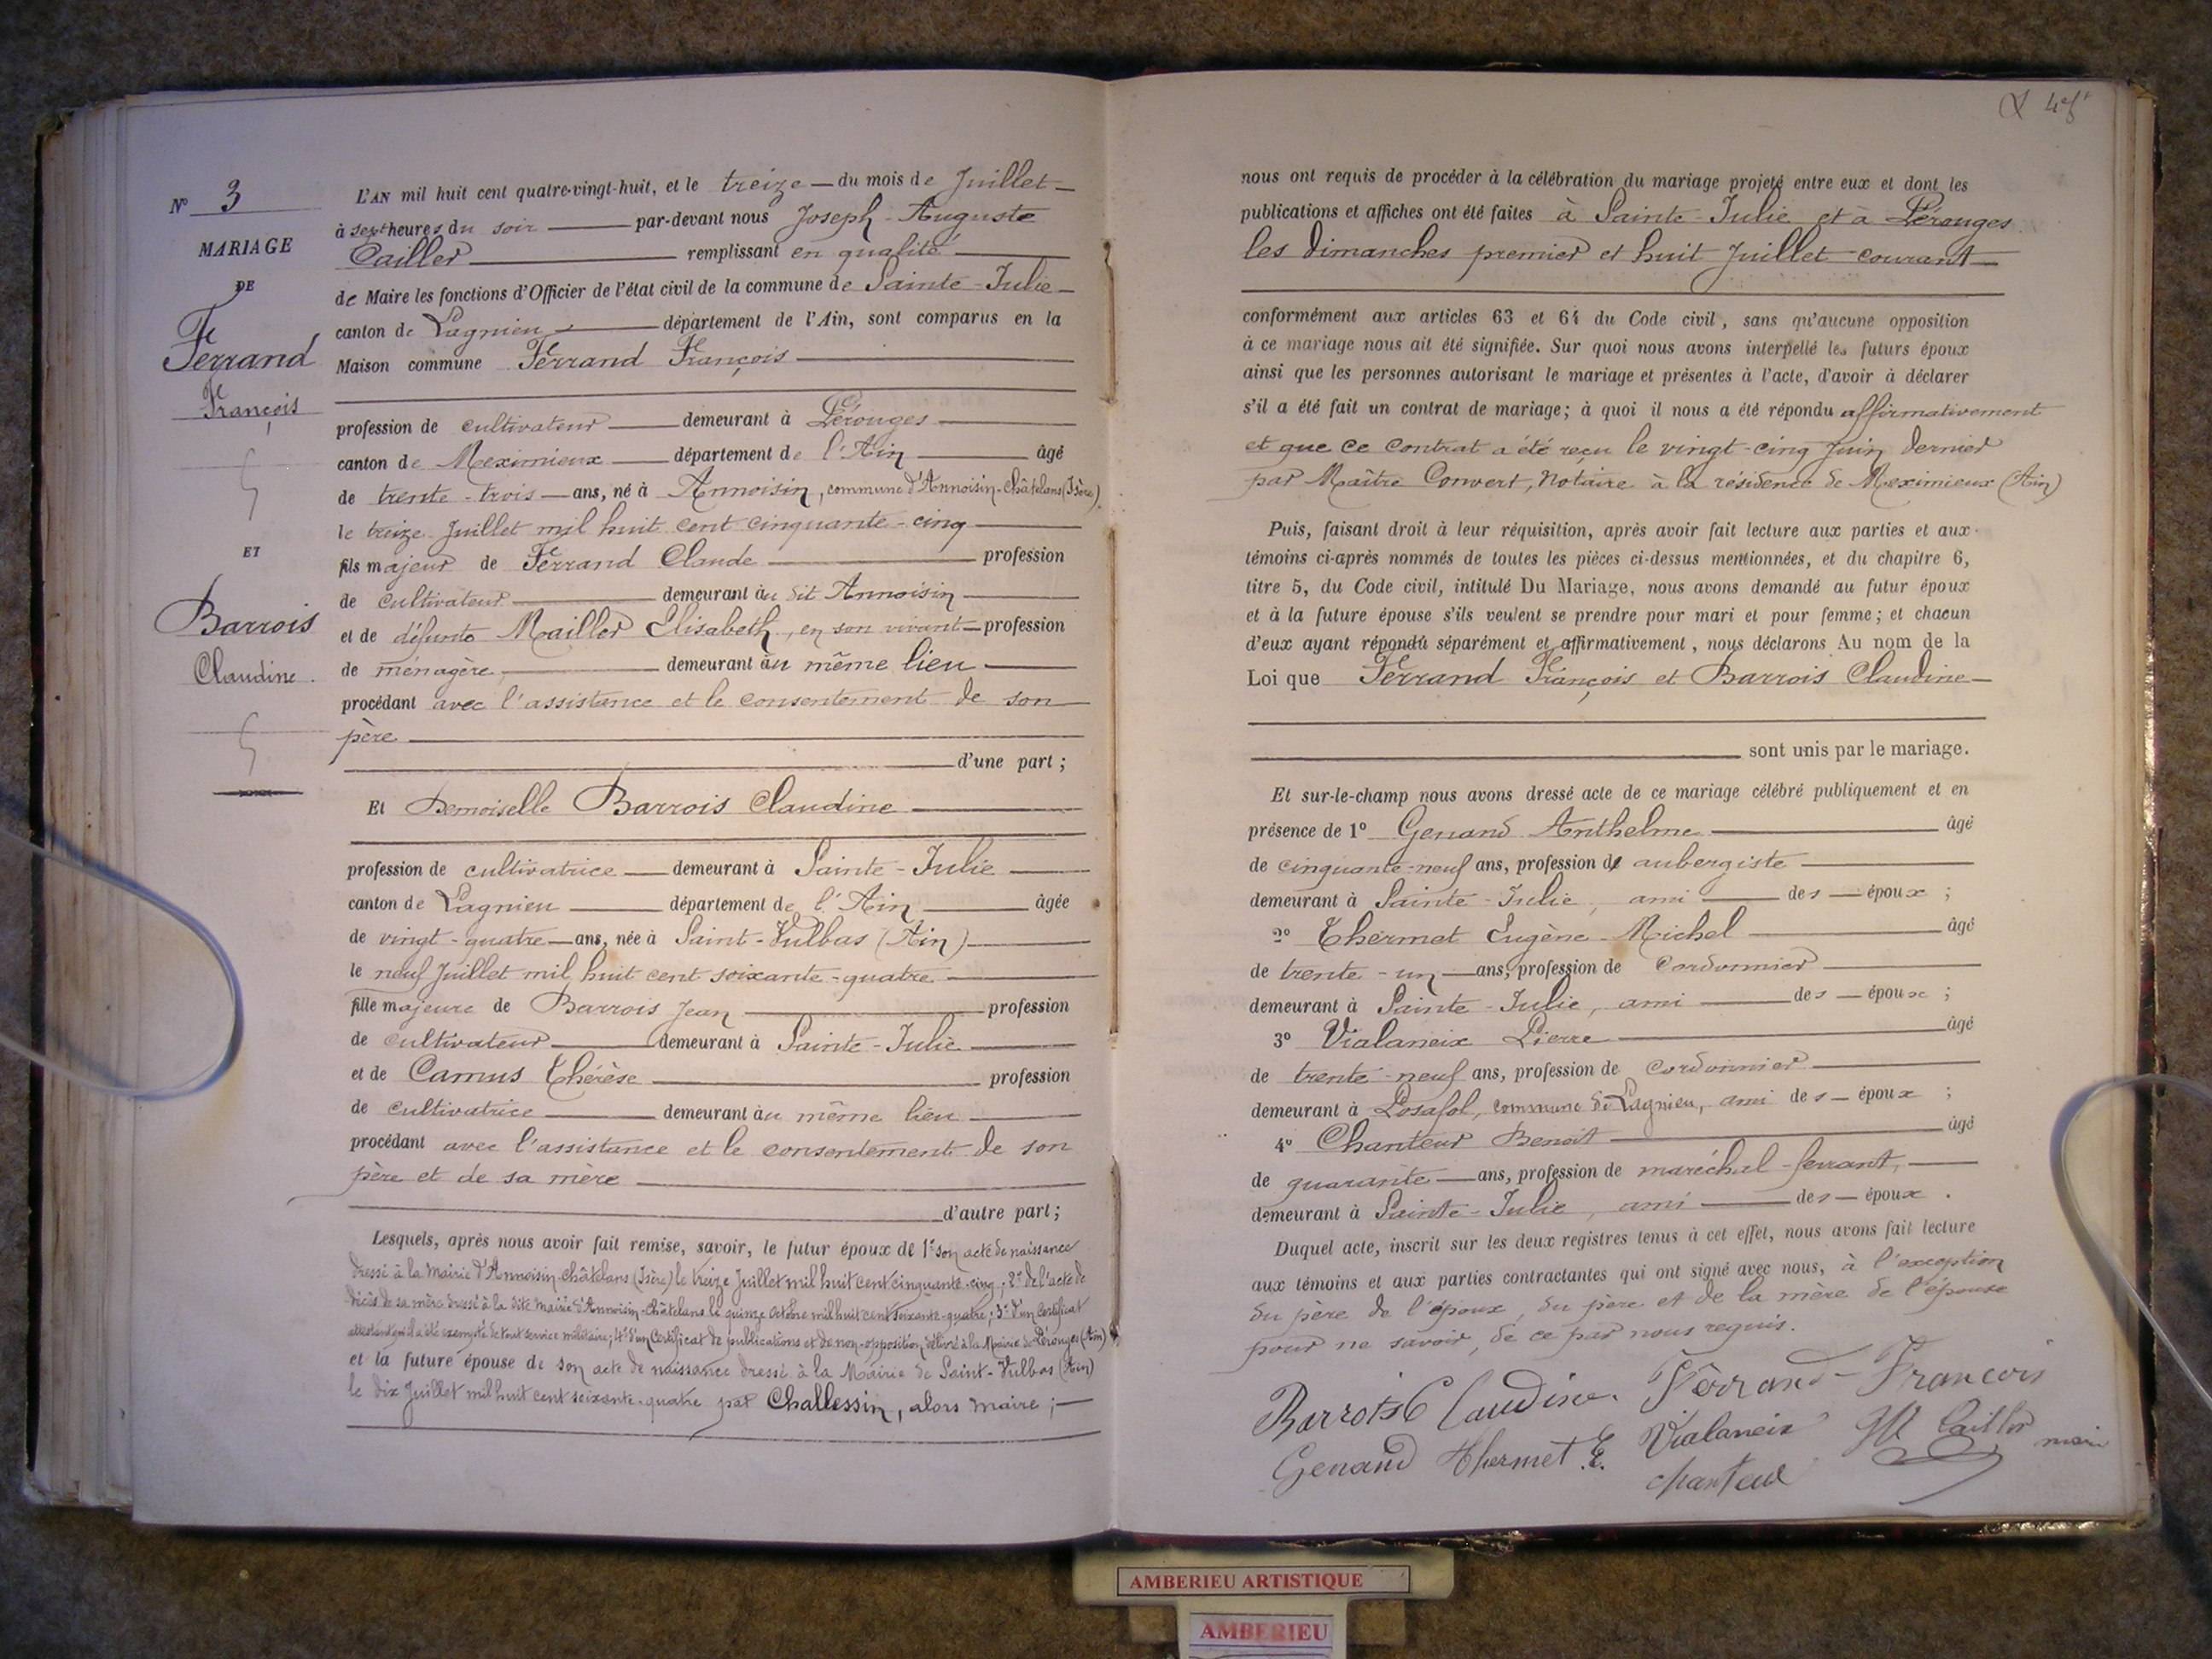 N° 3
MARIAGE
DE
Ferrand
François
ET
Barrois
Claudine.
L'AN mil huit cent quatre-vingt-huit, et le treize du mois de Juillet
à sept heures du soir par-devant nous Joseph-Auguste
Cailler remplissant en qualité
de Maire les fonctions d'Officier de l'état civil de la commune de Sainte-Julie
canton de Lagnieu département de l'Ain, sont comparus en la
Maison commune Ferrand François
profession de cultivateur demeurant à Pérouges
canton de Meximieux département de l'Ain âgé
de trente-trois ans, né à Annoisin, commune d'Annoisin-Châtelans (Isère)
le treize Juillet mil huit cent cinquante-cinq
fils majeur de Ferrand Claude profession
de cultivateur demeurant au dit Annoisin
et de défunte Mailler Elisabeth, en son vivant profession
de ménagère, demeurant au même lieu
procédant avec l'assistance et le consentement de son
père
d'une part ;
Et Demoiselle Barrois Claudine
profession de cultivatrice demeurant à Sainte-Julie
canton de Lagnieu département de l'Ain âgée
de vingt-quatre ans, née à Saint-Vulbas (Ain)
le neuf Juillet mil huit cent soixante-quatre
fille majeure de Barrois Jean profession
de cultivateur demeurant à Sainte-Julie
et de Camus Thérèse profession
de cultivatrice demeurant au même lieu
procédant avec l'assistance et le consentement de son
père et de sa mère
d'autre part ;
Lesquels, après nous avoir fait remise, savoir, le futur époux de 1° son acte de naissance
dressé à la Mairie d'Annoisin-Châtelans (Isère) le treize Juillet mil huit cent cinquante-cinq ; 2° de l'acte de
décès de sa mère dressé à la dite Mairie d'Annoisin-Châtelans le quinze Octobre mil huit cent soixante-quatre ; 3° d'un Certificat
attestant qu'il a été exempté de tout service militaire ; 4° d'un Certificat de publications et de non-opposition délivré à la Mairie de Pérouges (Ain)
et la future épouse de son acte de naissance dressé à la Mairie de Saint-Vulbas (Ain)
le dix Juillet mil huit cent soixante-quatre par Challessin, alors maire ;
nous ont requis de procéder à la célébration du mariage projeté entre eux et dont les
publications et affiches ont été faites à Sainte-Julie et à Pérouges
les dimanches premier et huit Juillet courant
conformément aux articles 63 et 64 du Code civil, sans qu'aucune opposition
à ce mariage nous ait été signifiée. Sur quoi nous avons interpellé les futurs époux
ainsi que les personnes autorisant le mariage et présentes à l'acte, d'avoir à déclarer
s'il a été fait un contrat de mariage ; à quoi il nous a été répondu affirmativement
et que ce contrat a été reçu le vingt-cinq Juin dernier
par Maître Convert, Notaire à la résidence de Meximieux (Ain)
Puis, faisant droit à leur réquisition, après avoir fait lecture aux parties et aux
témoins ci-après nommés de toutes les pièces ci-dessus mentionnées, et du chapitre 6,
titre 5, du Code civil, intitulé Du Mariage, nous avons demandé au futur époux
et à la future épouse s'ils veulent se prendre pour mari et pour femme ; et chacun
d'eux ayant répondu séparément et affirmativement, nous déclarons Au nom de la
Loi que Ferrand François et Barrois Claudine
sont unis par le mariage.
Et sur-le-champ nous avons dressé acte de ce mariage célébré publiquement et en
présence de 1° Genand Anthelme âgé
de cinquante-neuf ans, profession de aubergiste
demeurant à Sainte-Julie, ami des époux ;
2° Thermet Eugène-Michel âgé
de trente-un ans, profession de cordonnier
demeurant à Sainte-Julie, ami des époux ;
3° Vialaneix Pierre âgé
de trente-neuf ans, profession de cordonnier
demeurant à Posafol, commune de Lagnieu, ami des époux ;
4° Chanteur Benoit âgé
de quarante ans, profession de maréchal-ferrant,
demeurant à Sainte-Julie, ami des époux.
Duquel acte, inscrit sur les deux registres tenus à cet effet, nous avons fait lecture
aux témoins et aux parties contractantes qui ont signé avec nous, à l'exception
du père de l'époux, du père et de la mère de l'épouse
pour ne savoir, de ce par nous requis.
Barrois Claudine. Ferrand François
Genand Thermet E. Vialaneix Cailler maire
chanteur
AMBERIEU ARTISTIQUE
AMBERIEU